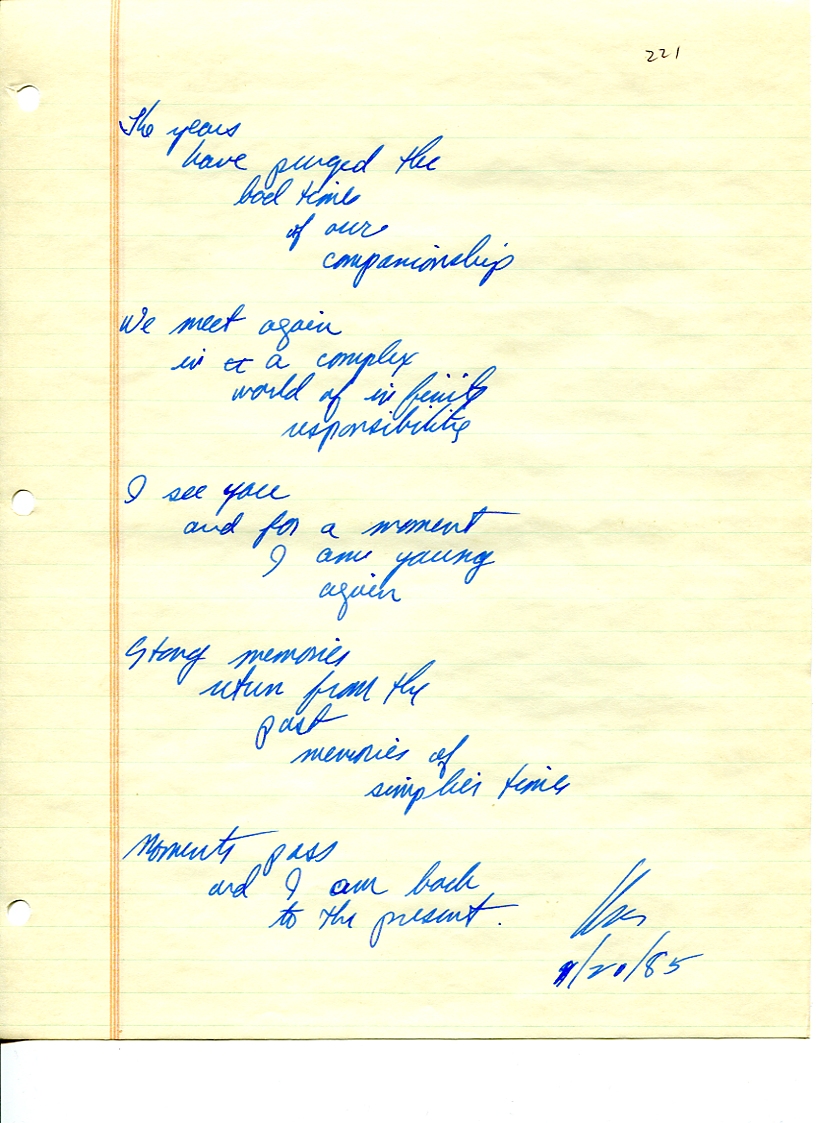 221
The years
have purged the
bad times
of our
companionship
We meet again
in a a complex
world of infinite
responsibility
I see you
and for a moment
I am young
again
Stong memories
return from the
past
memories of
simplier times
Moments pass
and I am back
to the present.
/20/85